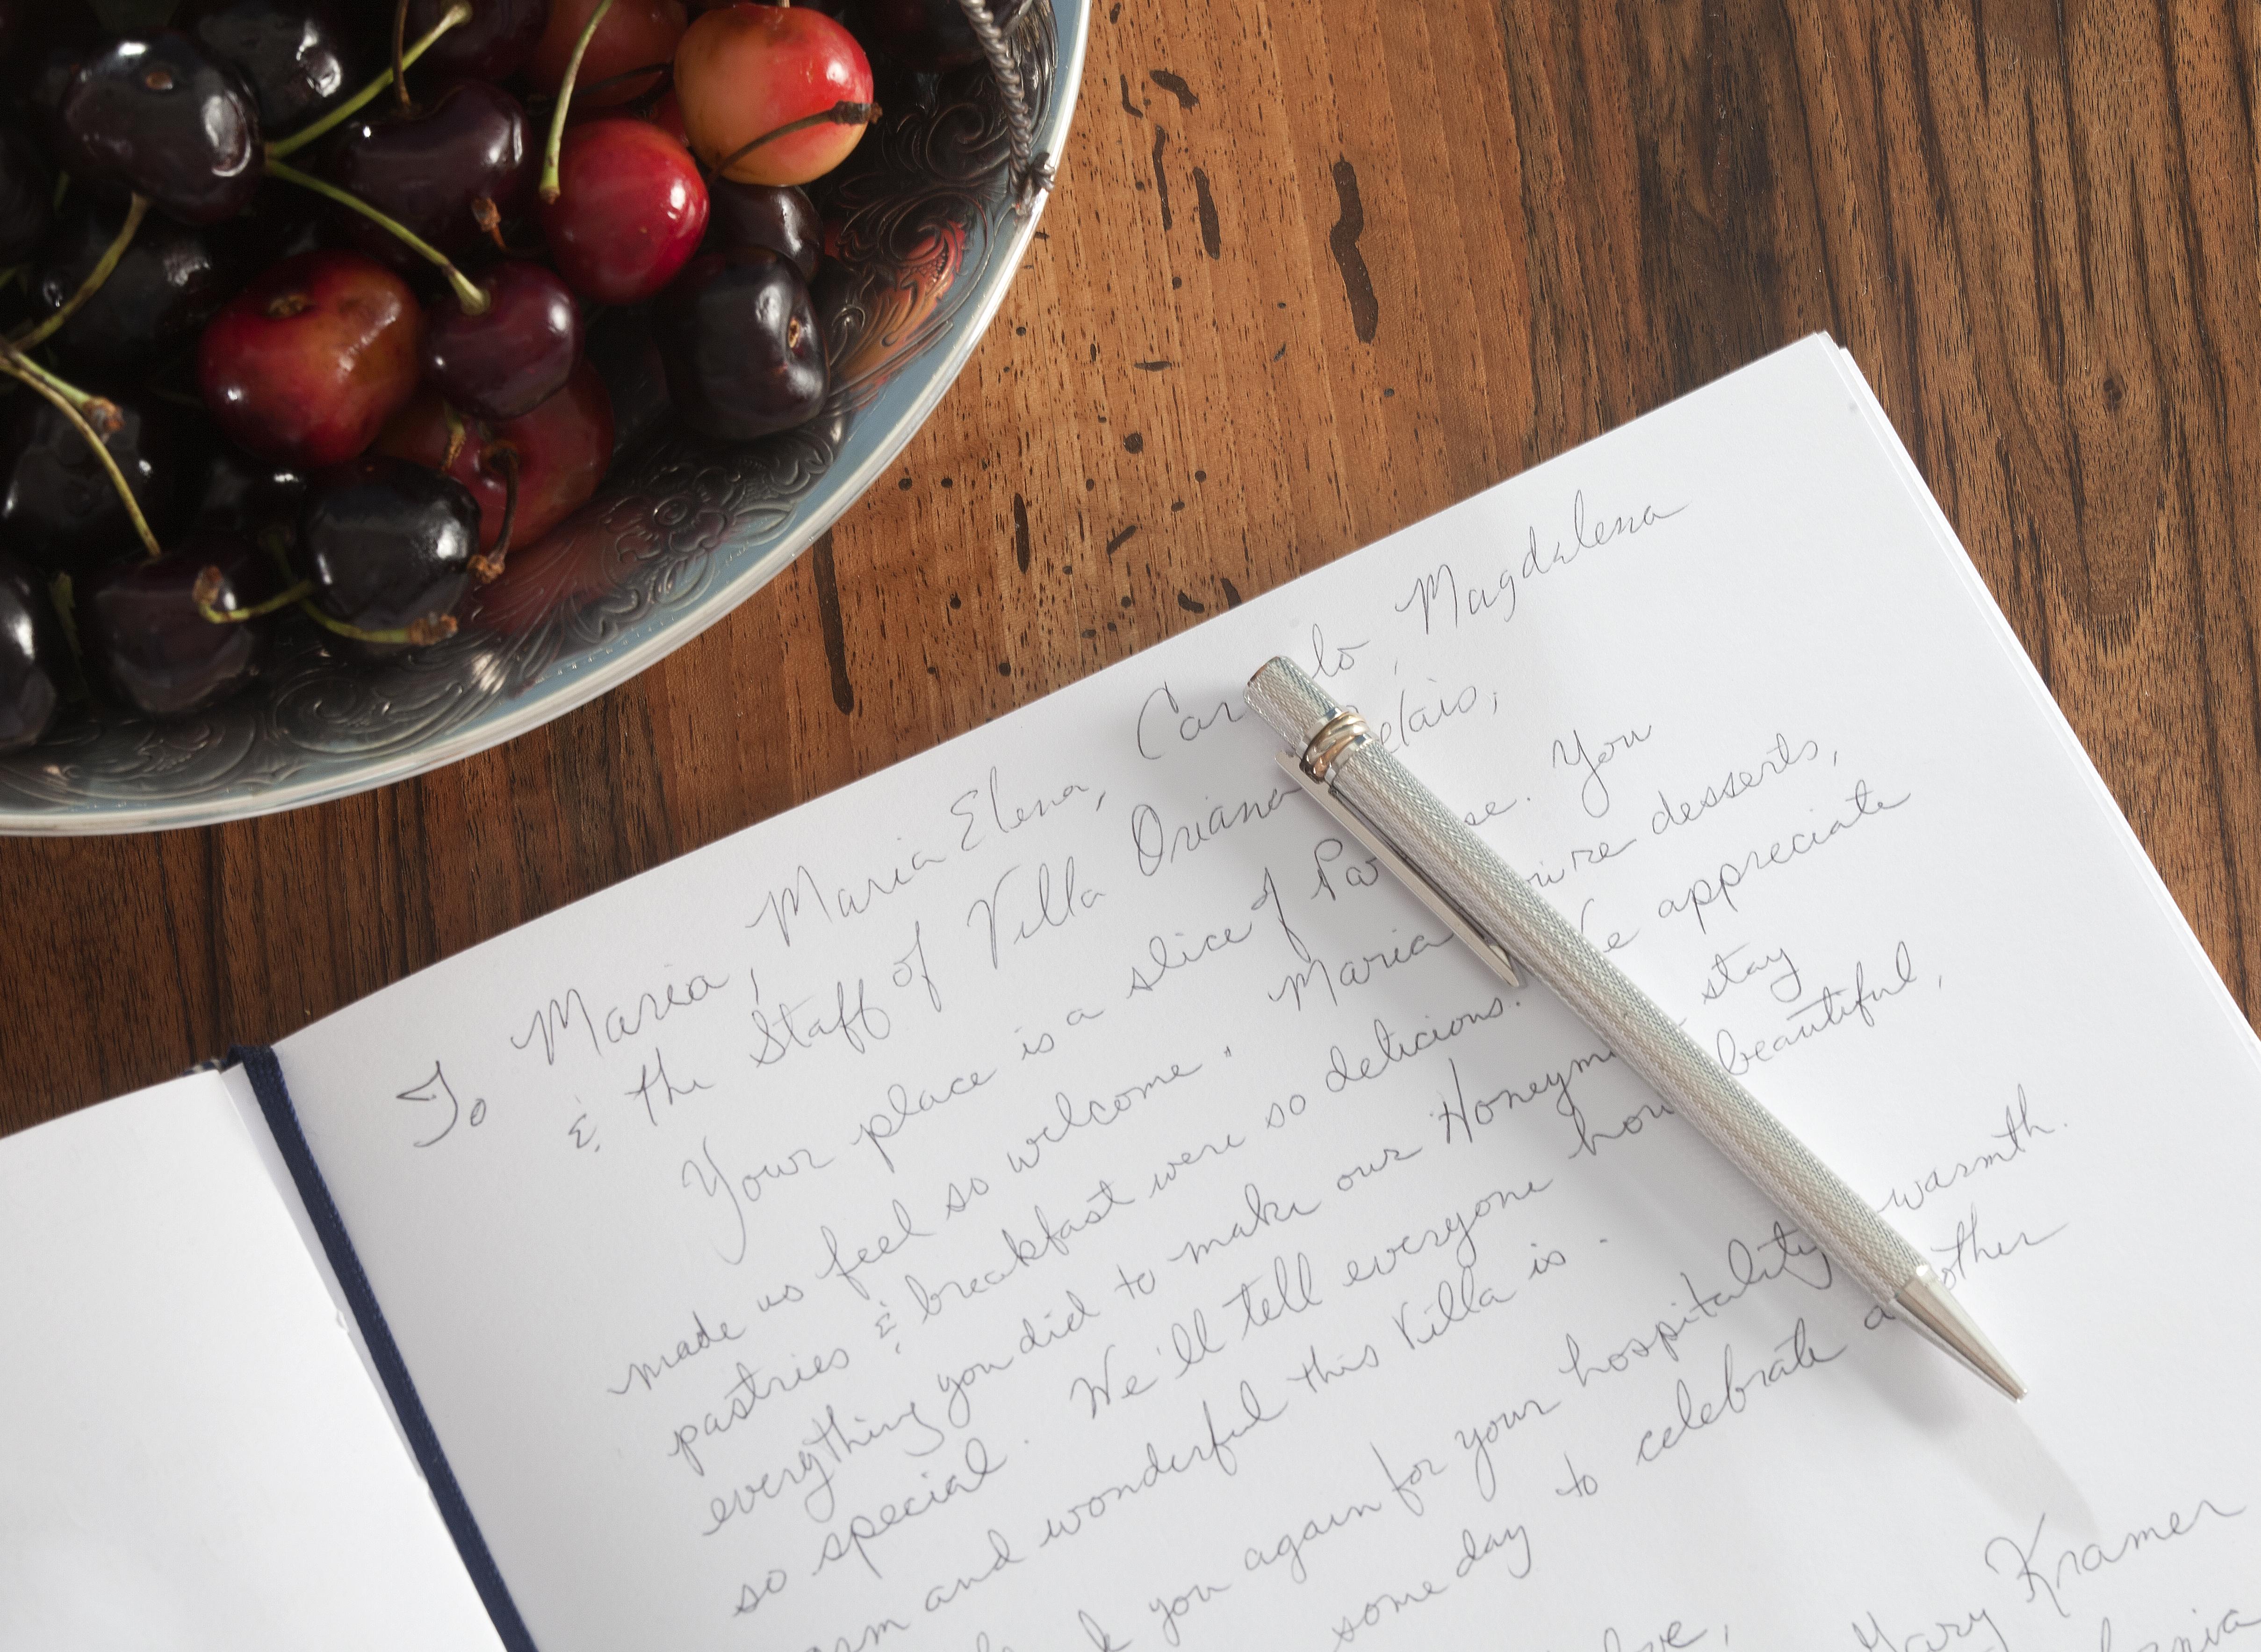 To Maria, Maria Elena, Magdalena
& the Staff of Villa Oriana
Your place is a slice of Paradise. You
made us feel so welcome. Maria desserts,
pastries & breakfast were so delicious. We appreciate
everything you did to make our Honeymoon stay
so special. We'll tell everyone how beautiful,
and wonderful this Villa is.
you again for your hospitality warmth.
some day to celebrate another
Love,
Mary Kramer